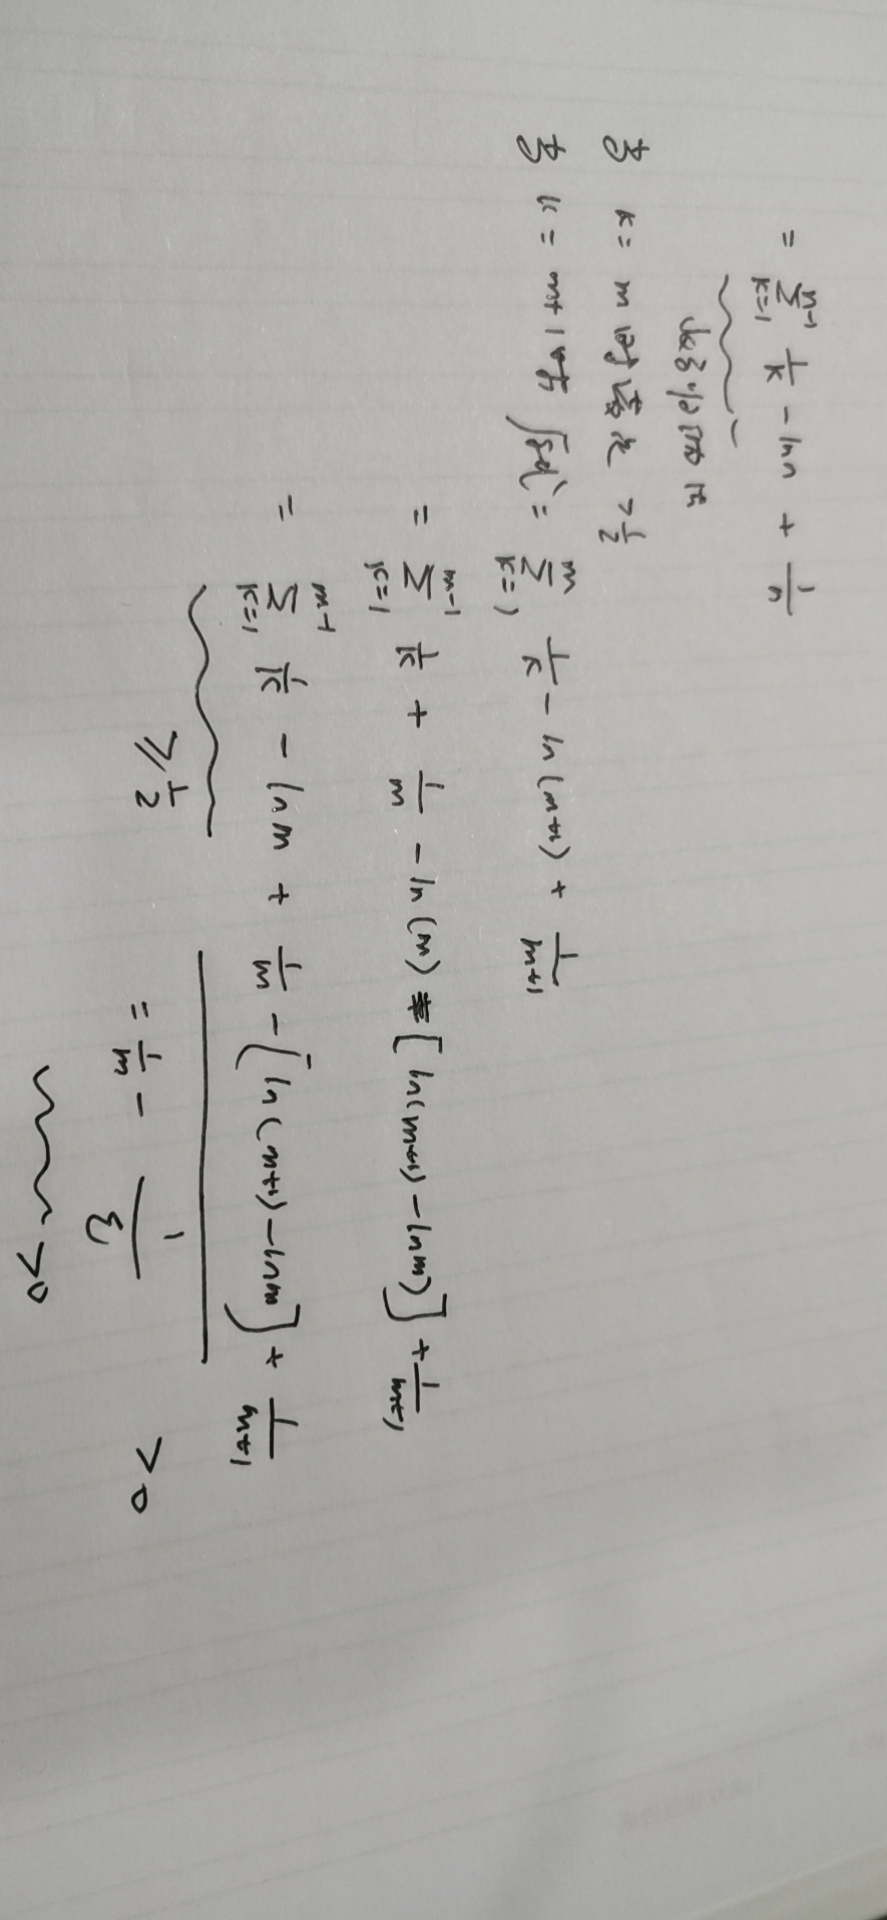 = \sum_{k=1}^{n-1} \frac{1}{k} - \ln n + \frac{1}{n}
当 k = m 时 > \frac{1}{2}
当 k = m+1 时 = \sum_{k=1}^{m} \frac{1}{k} - \ln(m+1) + \frac{1}{m+1}
= \sum_{k=1}^{m-1} \frac{1}{k} + \frac{1}{m} - \ln(m) [\ln(m+1) - \ln m] + \frac{1}{m+1}
= \sum_{k=1}^{m-1} \frac{1}{k} - \ln m + \frac{1}{m} - [\ln(m+1) - \ln m] + \frac{1}{m+1}
≥ \frac{1}{2}
= \frac{1}{m} - \frac{1}{ξ}
> 0
> 0